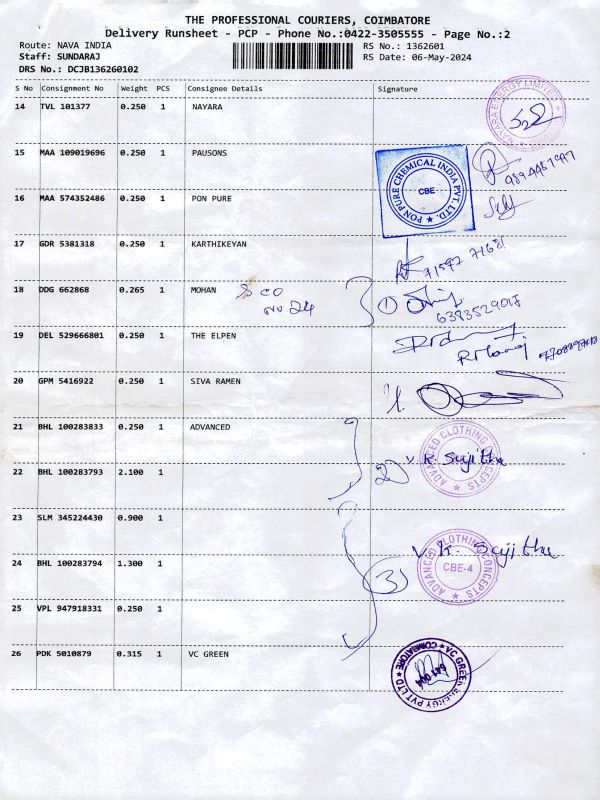 THE PROFESSIONAL COURIERS, COIMBATORE
Delivery Runsheet - PCP - Phone No.:0422-3505555 - Page No.:2
Route: NAVA INDIA
RS No.: 1362601
Staff: SUNDARAJ
RS Date: 06-May-2024
DRS No.: DCJB136260102
S No Consignment No Weight PCS Consignee Details Signature
14 TVL 101377 0.250 1 NAYARA
NAYARA ENERGY LIMITED
15 MAA 109019696 0.250 1 PAUSONS
PON PURE CHEMICAL INDIA PVT. LTD.
CBE
16 MAA 574352486 0.250 1 PON PURE
17 GDR 5381318 0.250 1 KARTHIKEYAN
71597 71681
18 DDG 662868 0.265 1 MOHAN
1
6383529017
19 DEL 529666801 0.250 1 THE ELPEN
20 GPM 5416922 0.250 1 SIVA RAMEN
21 BHL 100283833 0.250 1 ADVANCED
ADVANCED CLOTHING CONCEPTS
2 V. K. Sujitha
22 BHL 100283793 2.100 1
23 SLM 345224430 0.900 1
V. K. Sujitha
24 BHL 100283794 1.300 1
3
ADVANCED CLOTHING CONCEPTS
CBE-4
25 VPL 947918331 0.250 1
26 PDK 5010879 0.315 1 VC GREEN
VC GREEN ENERGY PVT LTD
COIMBATORE
641 004